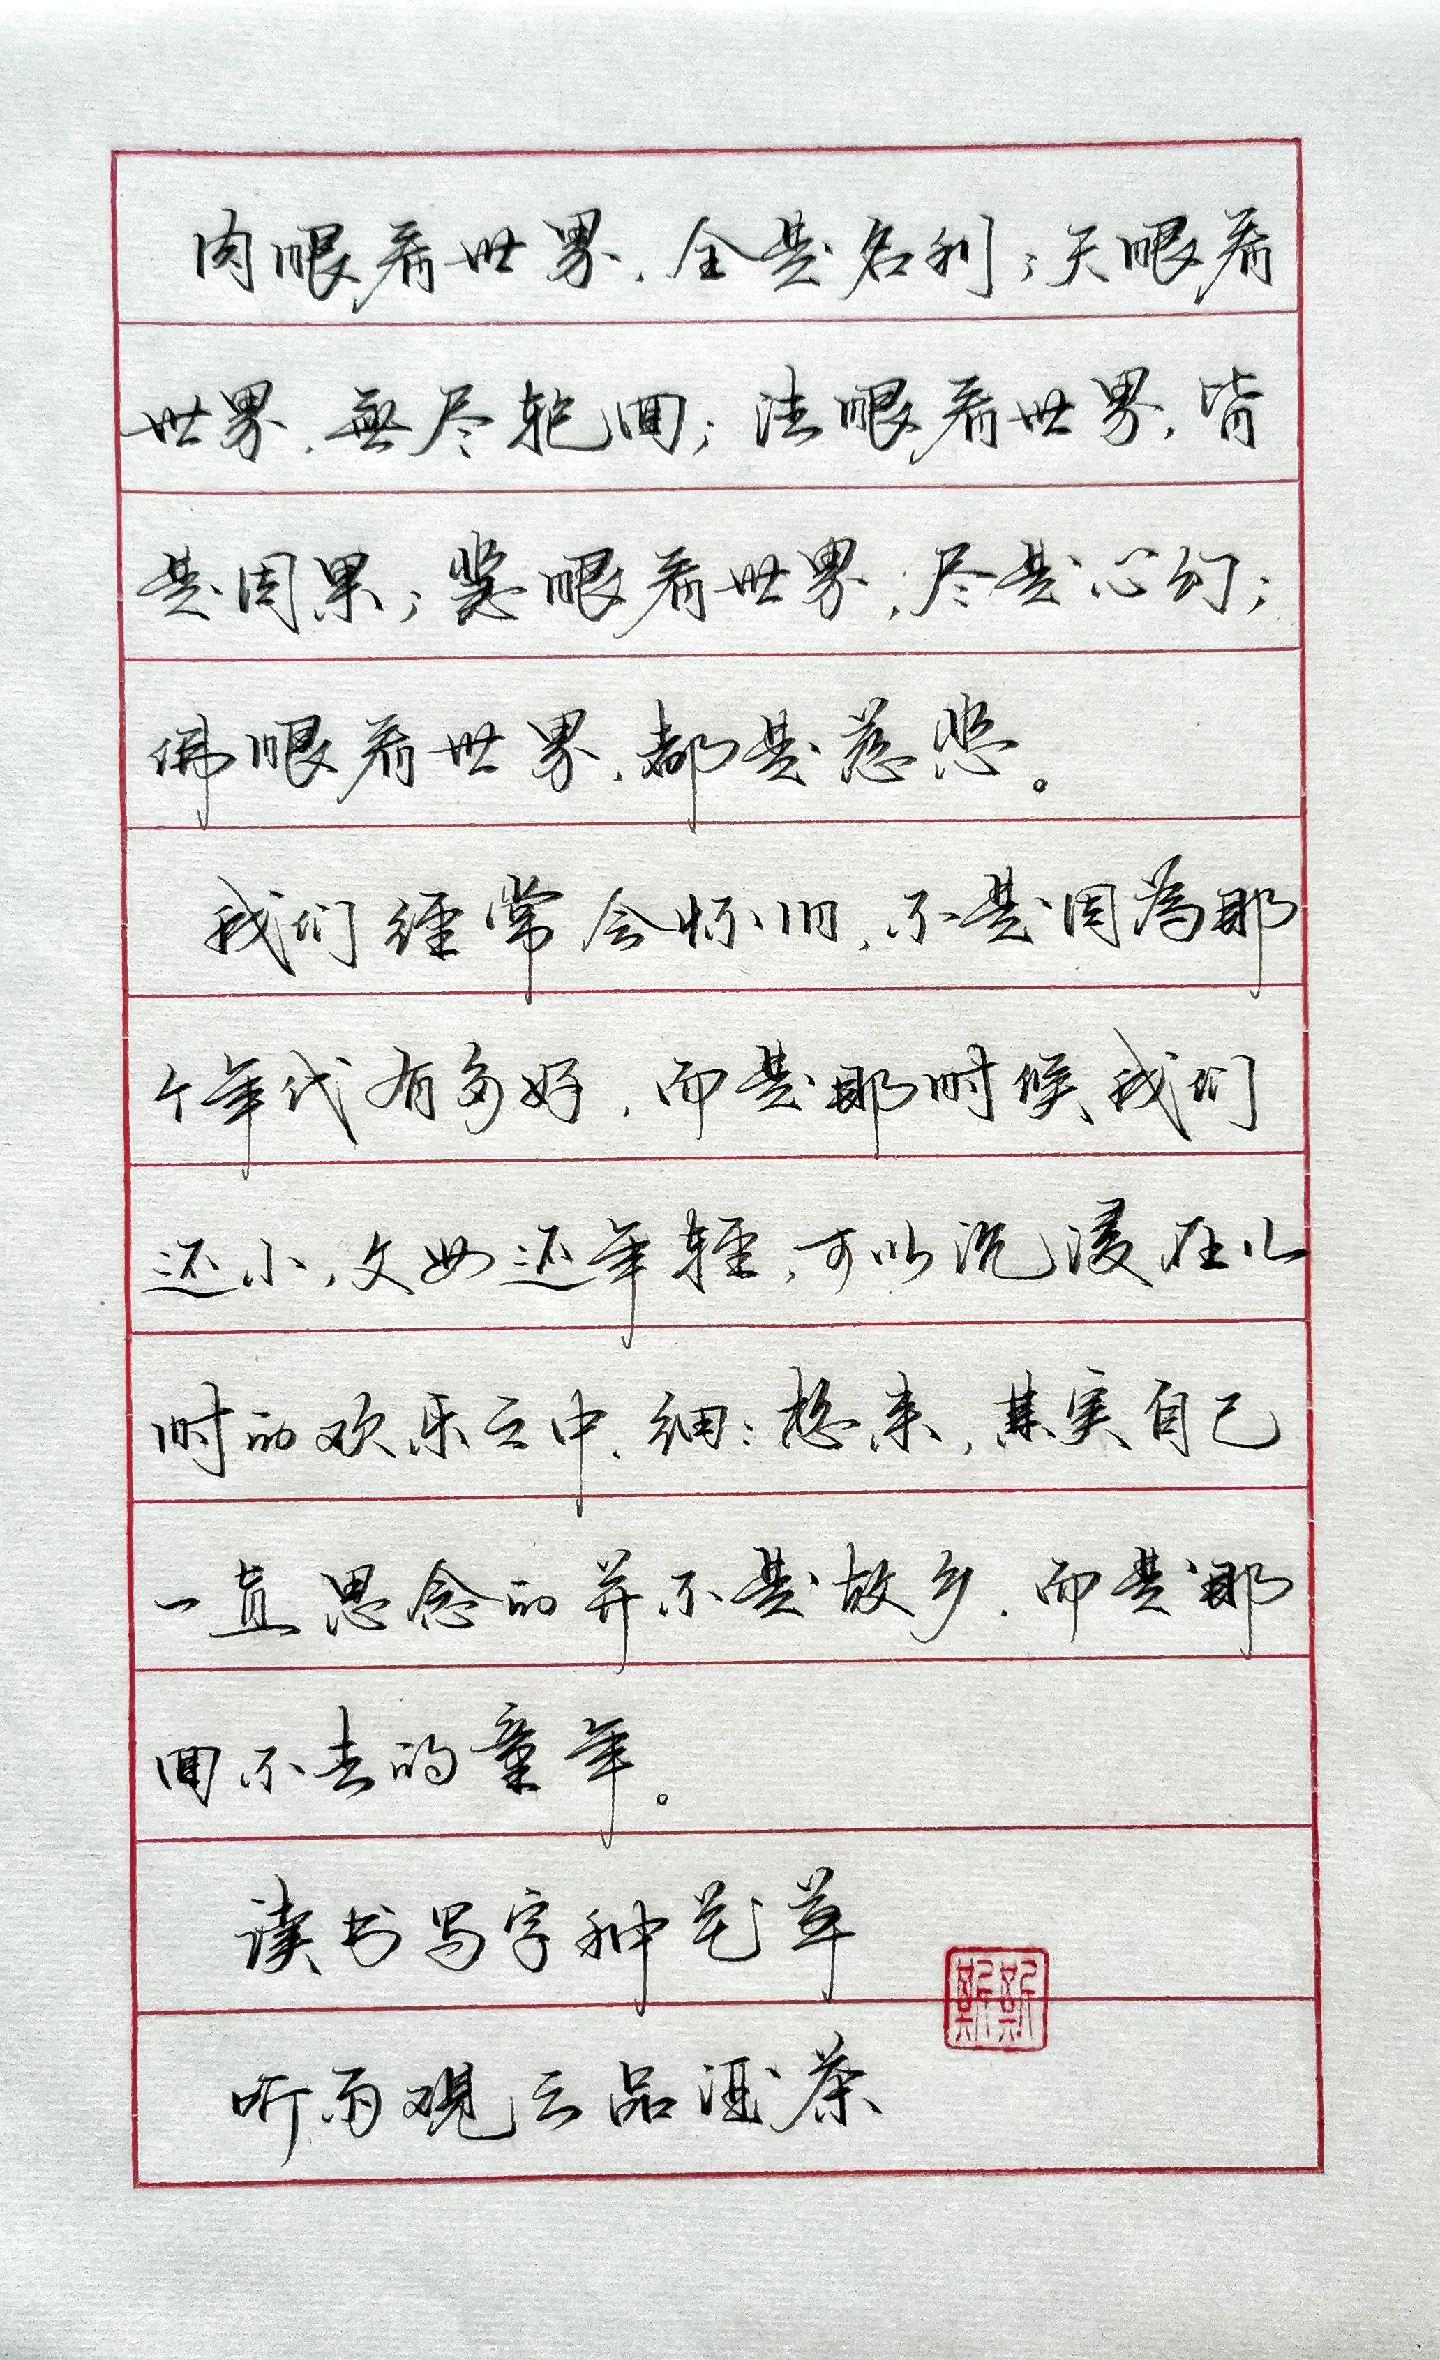 肉眼看世界，全是名利；天眼看
世界，無尽轮回；法眼看世界，皆
是因果；慧眼看世界，尽是心幻；
佛眼看世界，都是慈悲。
我们经常会怀旧，不是因為那
个年代有多好，而是那时候我们
还小，父母还年轻，可以沉浸在儿
时的欢乐之中，细：想来，其实自己
一直思念的并不是故乡，而是那
回不去的童年。
读书写字种花草
听雨观云品酒茶